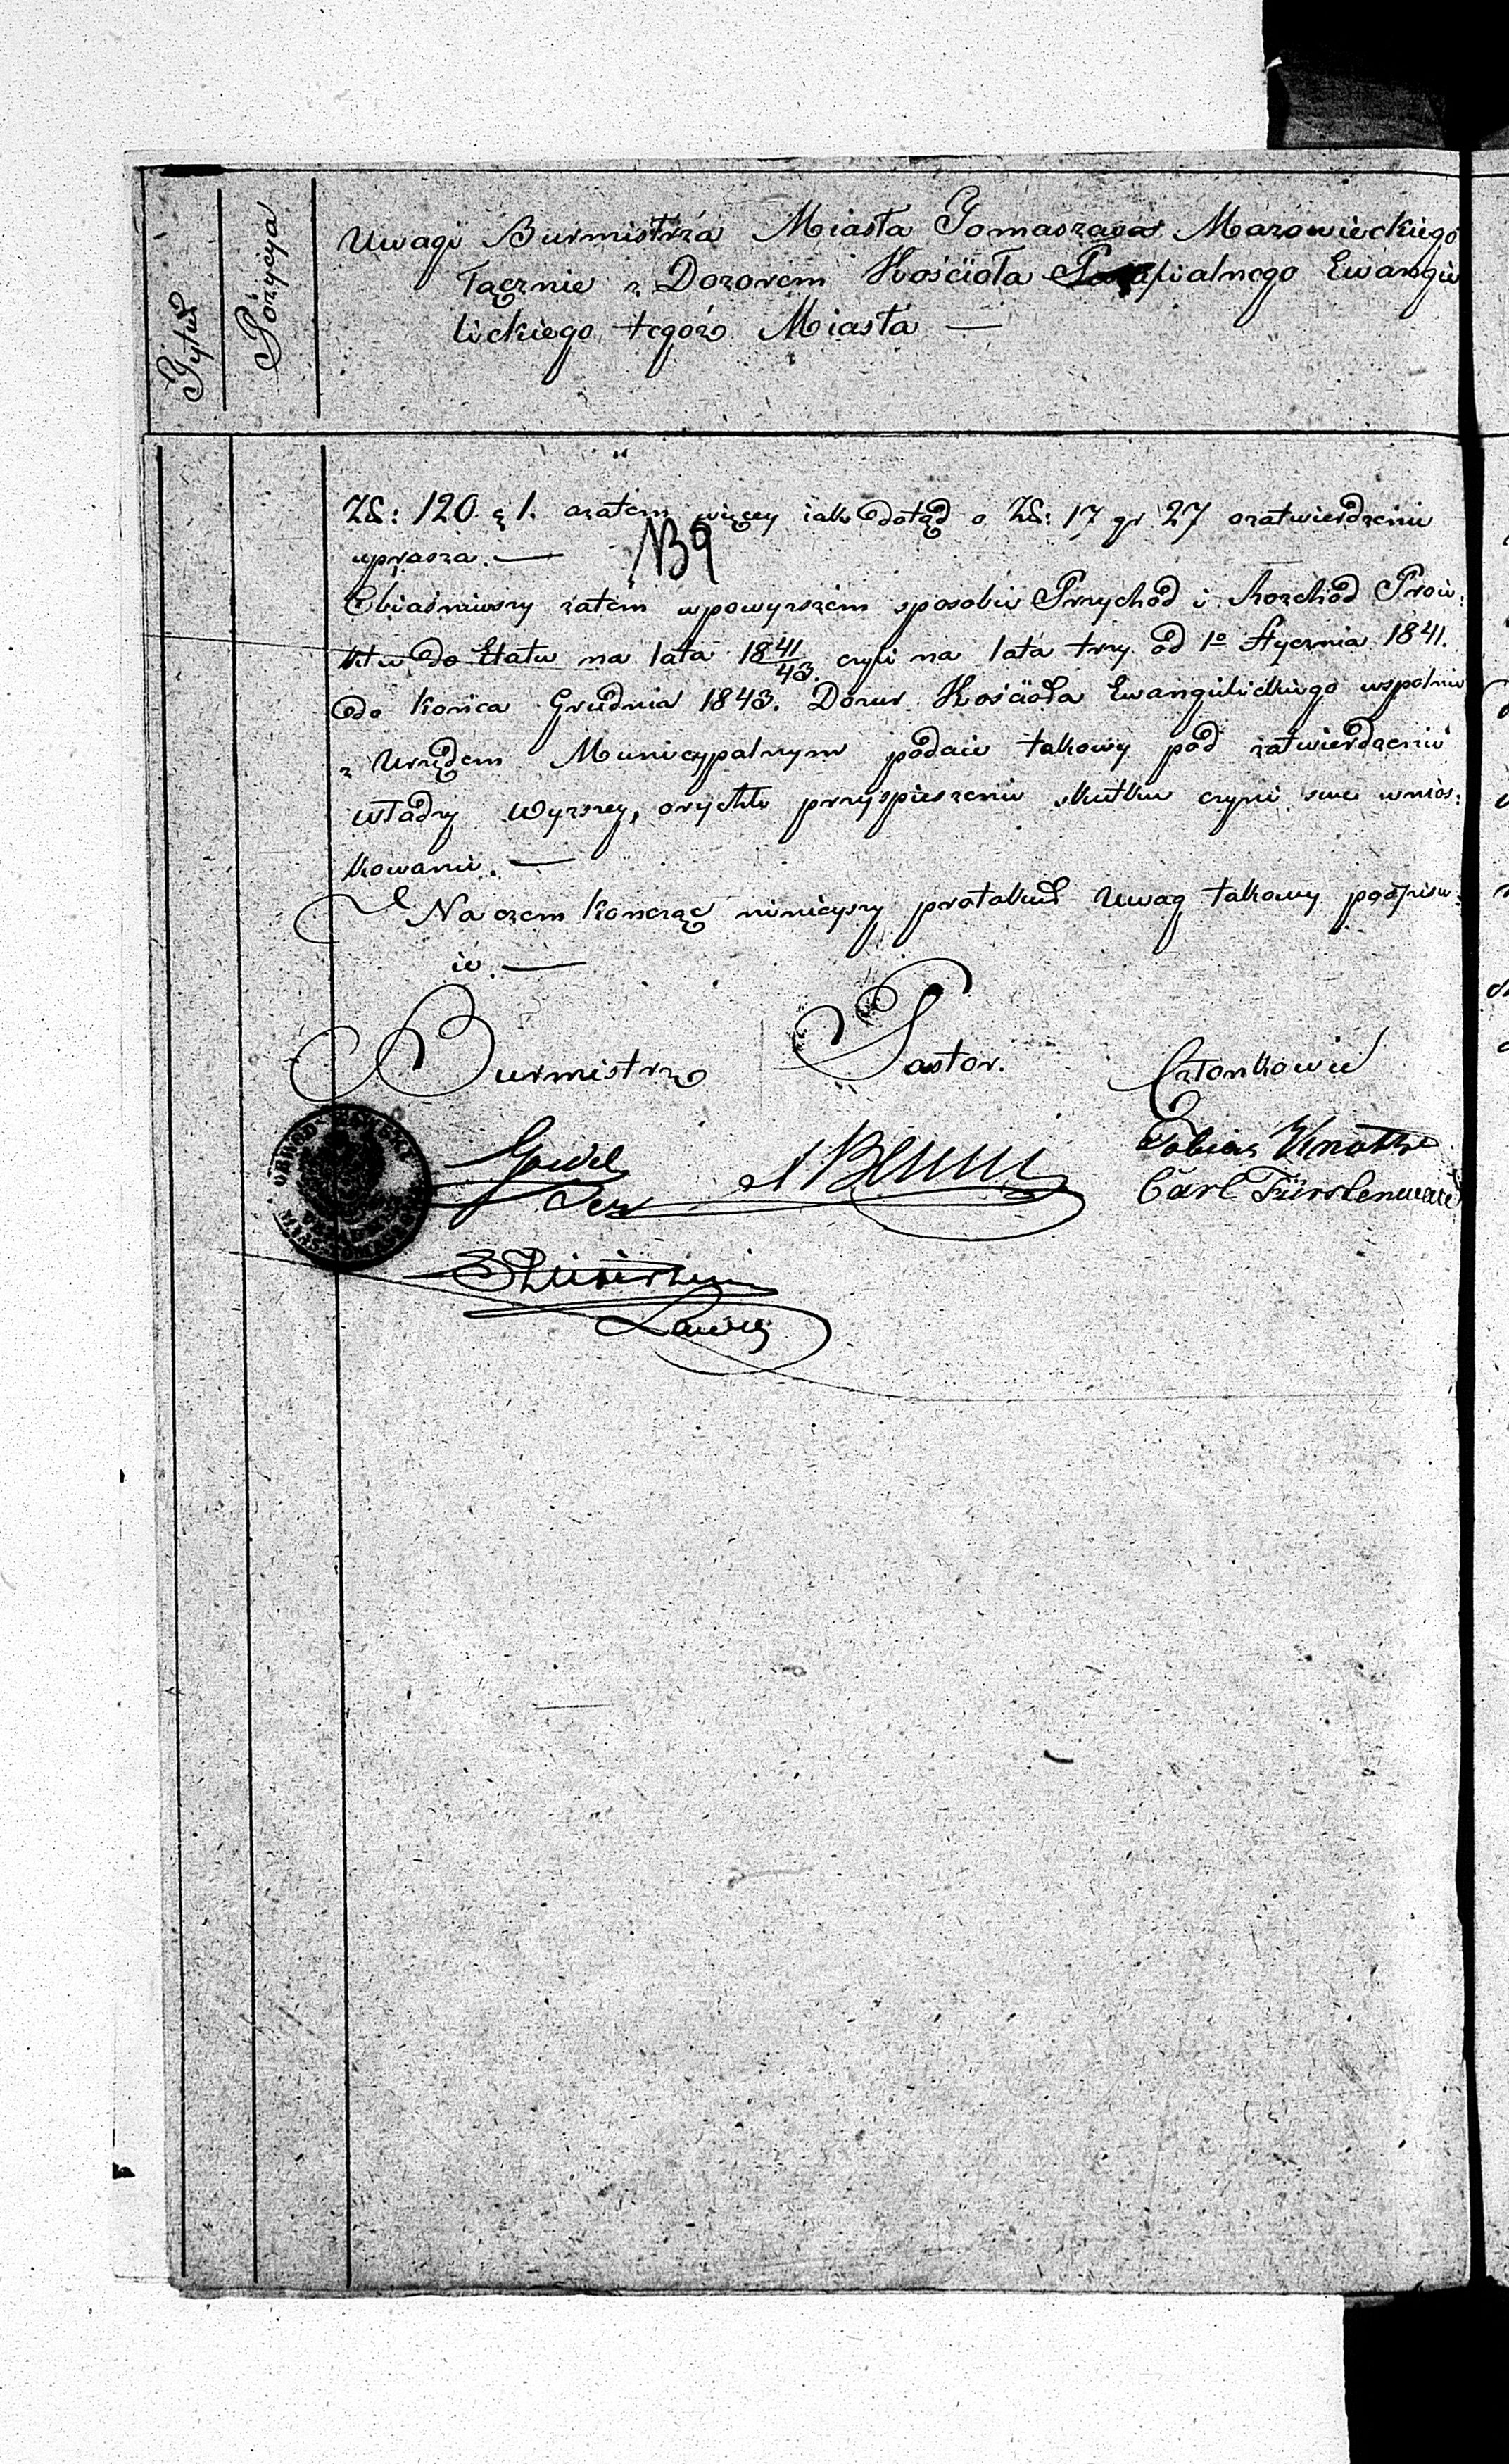 Tytuł
Pozycya
Uwagi Burmistrza Miasta Tomaszowa Mazowieckiego
łącznie z Dozorem Kościoła Parafialnego Ewangie
lickiego tegóż Miasta —
Zł: 120 g 1. azatem więcey iak dotąd o Zł: 17 gr 27 ozatwierdzenie
uprasza. —
NB 9
Obiaśniwszy zatém wpowyższém sposobie Przychód i Rozchód Proie:
ktu do Etatu na lata 18 41/43. czyli na lata trzy od 1o Stycznia 1841.
do końca Grudnia 1843. Dozur Kościoła Ewangielickiego wspolnie
z Urzędem Municypalnym podaie takowy pod zatwierdzenie
władzy Wyższey, orychłe przyspieszenie skutku czyni swe wnios:
kowanie. —
Na czem kończąc ninieyszy protokuł Uwag takowy podpisu:
ie. —
Burmistrz Pastor. Członkowie
Benni Tobias Knothe
Carl Fürstenwald
Ławnik